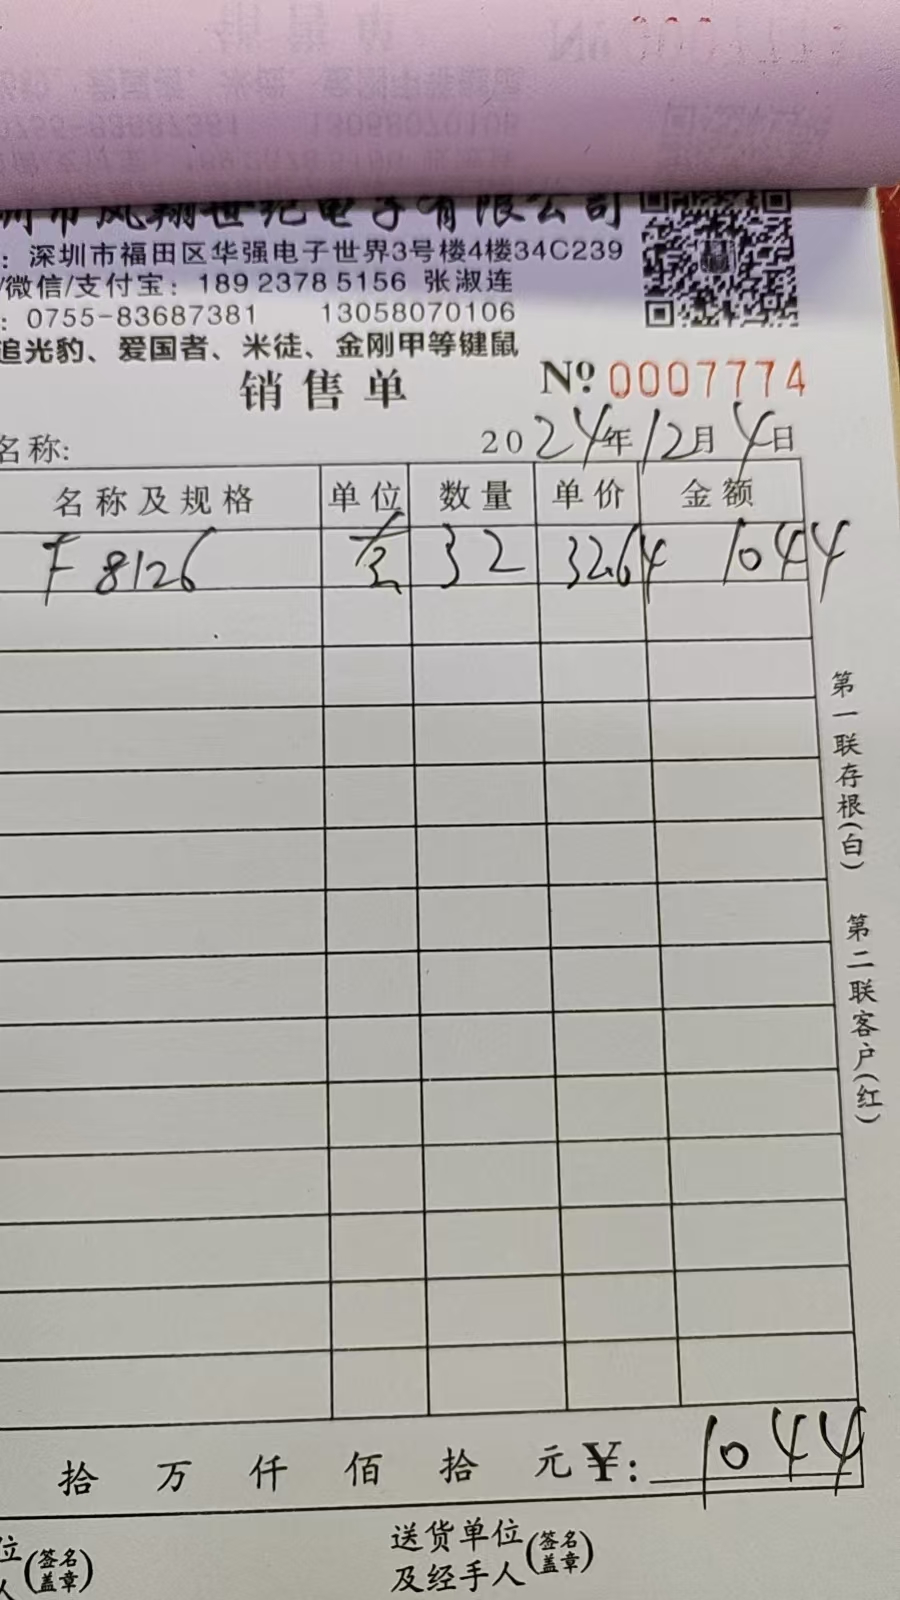 圳市凤翔世纪电子有限公司
：深圳市福田区华强电子世界3号楼4楼34C239
/微信/支付宝：189 2378 5156 张淑连
：0755-83687381 13058070106
追光豹、爱国者、米徒、金刚甲等键鼠
销售单 Nº 0007774
名称: 2024年12月4日
名称及规格 单位 数量 单价 金额
F8126 套 32 32.64 1044
第一联存根(白) 第二联客户(红)
拾 万 仟 佰 拾 元 ¥: 1044
位 (签名盖章) 送货单位 (签名盖章)
人 及经手人